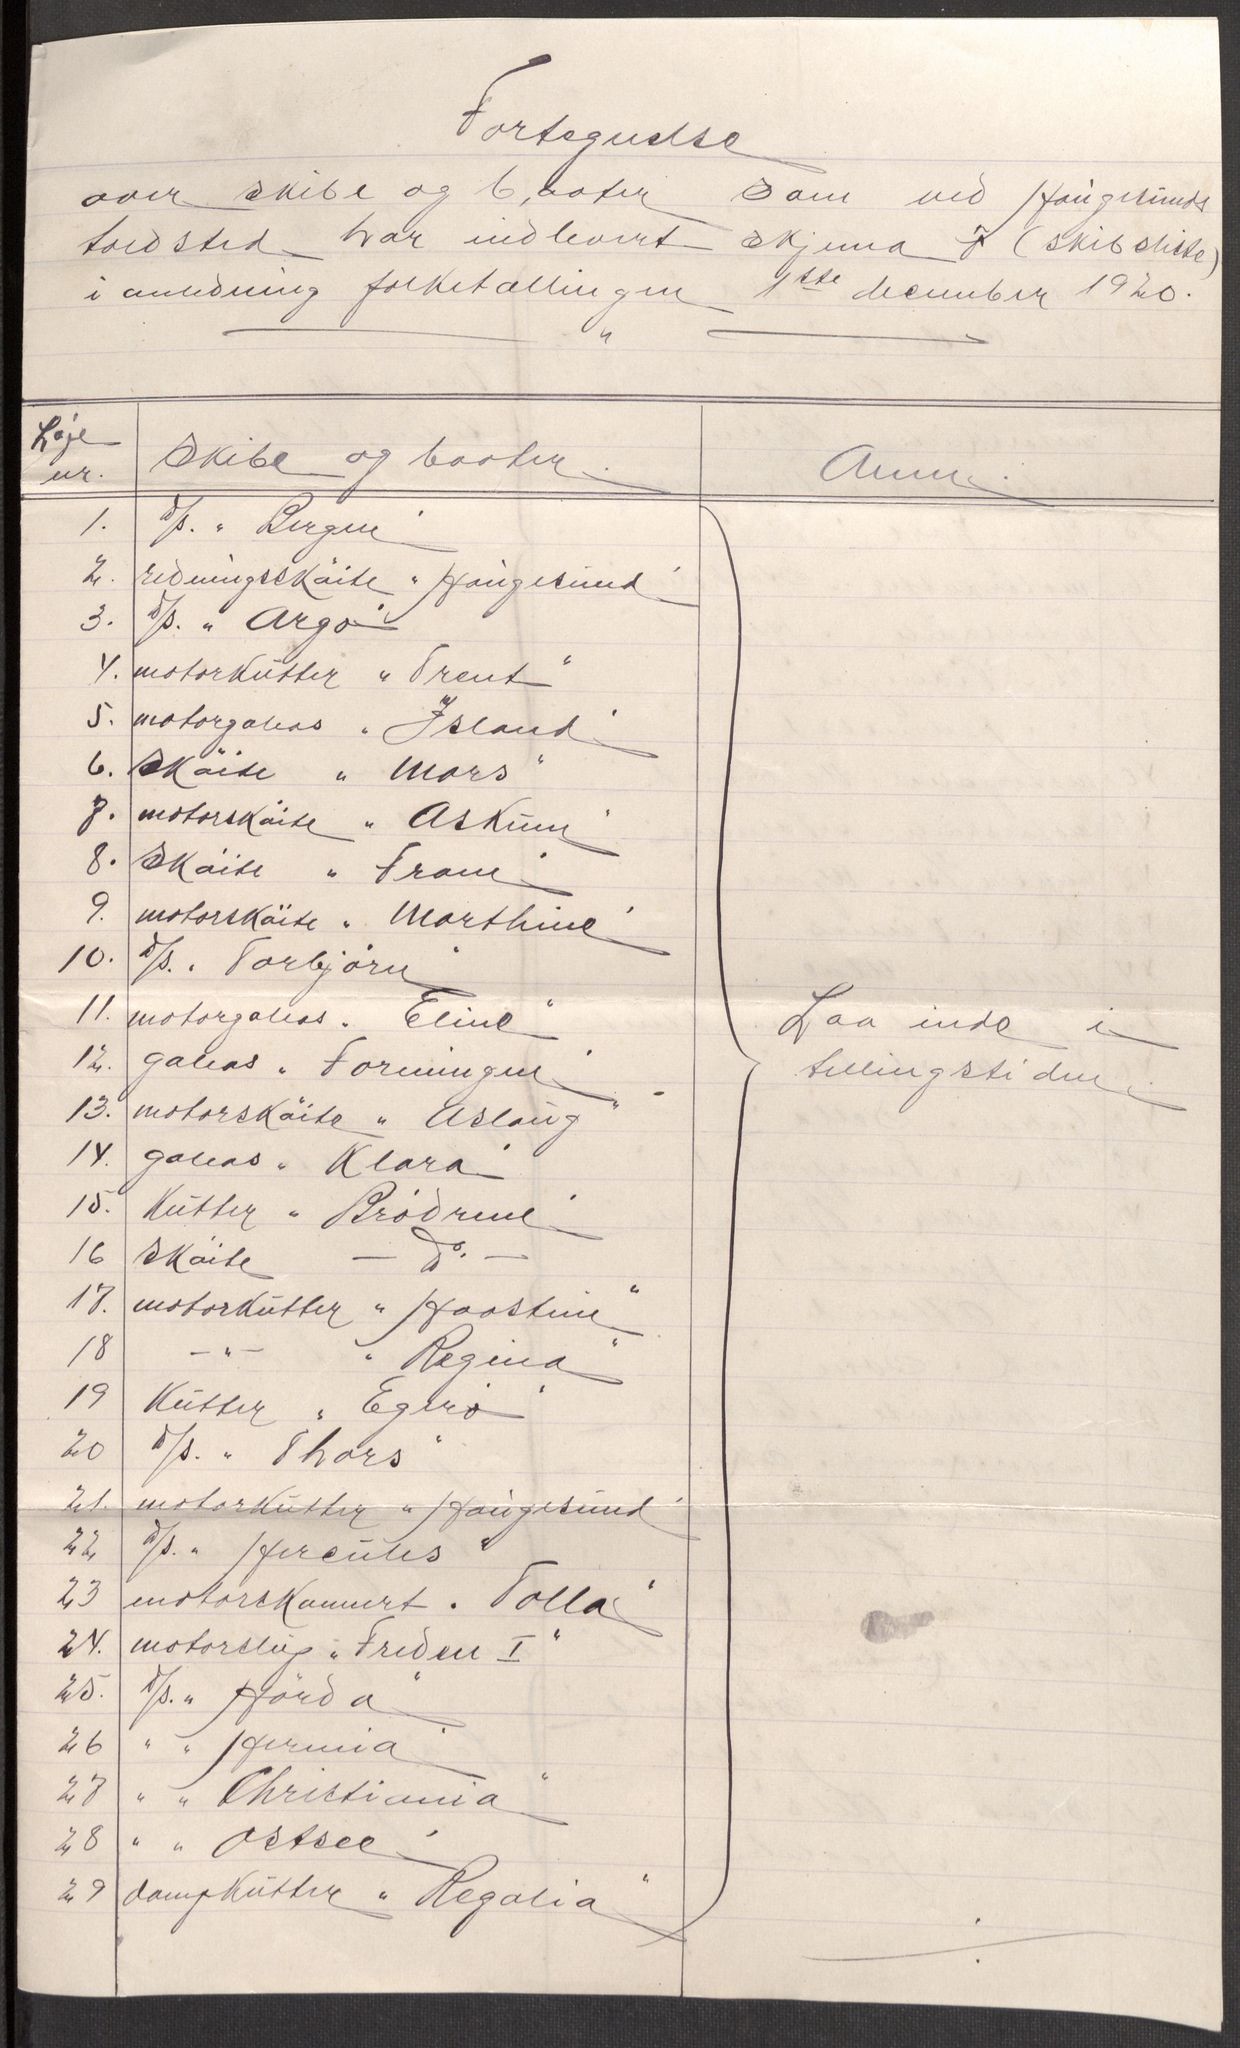 Fortegnelse
over skibe og baater som ved Haugesunds
toldsted har indlevert skjema 7 (skibsliste)
i anledning folketællingen 1ste december 1920.
"
Løpe nr. Skibe og baater. Anm.
1. D/s. "Bergen"
2. redningsskøite "Haugesund"
3. D/s. "Argo"
4. motorkutter "Trent"
5. motorgaleas "Island"
6. Skøite "Mars"
7. motorskøite "Askum"
8. Skøite "Fram"
9. motorskøite "Marthine"
10. D/s. "Torbjørn"
11. motorgaleas "Eline"
12. galeas "Foreningen"
13. motorskøite "Aslaug"
14. galeas "Klara"
15. Kutter "Brødrene"
16 Skøite — Do. —
17. motorkutter "Haastein"
18 — " — "Regina"
19 Kutter "Egerø"
20 D/s. "Thors"
21. motorkutter "Haugesund"
22 D/s. "Hercules"
23 motorskonnert "Tolla"
24. motorslup "Freden I"
25. D/s. "Hörda"
26 " "Hermia"
27 " "Christiania"
28 " "Ostsee"
29 dampkutter "Regalia"
Laa inde i
tellingstiden.